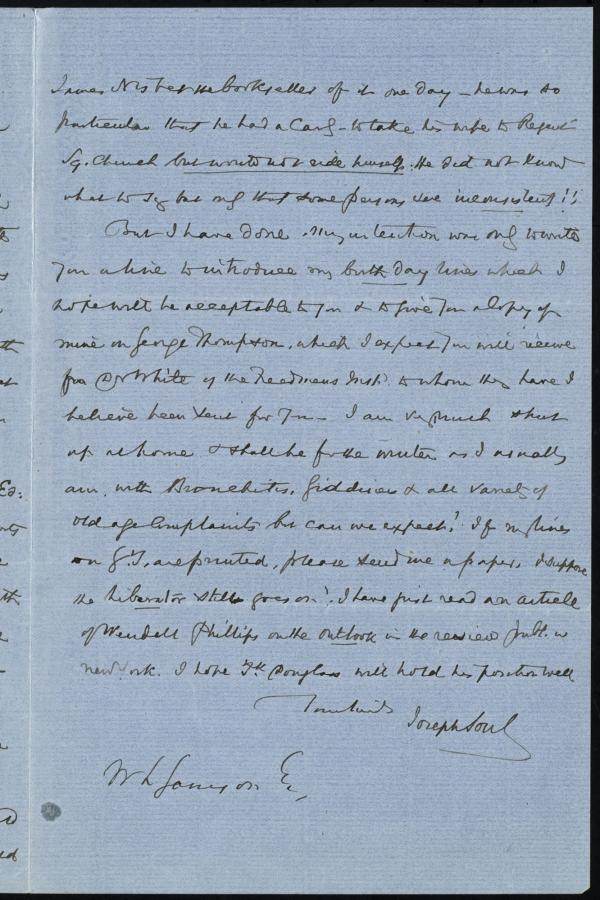 James Nisbet the bookseller of it one day – he was so
particular that he had a Carg – to take his wife to Regent
Sq. Church but would not ride himself. He did not know
what to say but only that some persons were inconsistent!!
But I have done. My intention was only to write
you a line to introduce my birth day lines which I
hope will be acceptable to you & to give you a Copy of
mine on George Thompson, which I expect you will receive
from Dr White of the Freedmens Inst. to whom they have I
believe been sent for you – I am very much shut
up at home & shall be for the winter as I usually
am, with Bronchitis, Giddiness & all variety of
old age Complaints but can we expect? If my lines
on G.T. are printed, please send me a paper, I suppose
the Liberator still goes on! I have just read an article
of Wendell Phillips on the outlook in the review publ. in
New York. I hope Fk Douglass will hold his position well
Yours truly
Joseph Soul
W L Garrison Esq